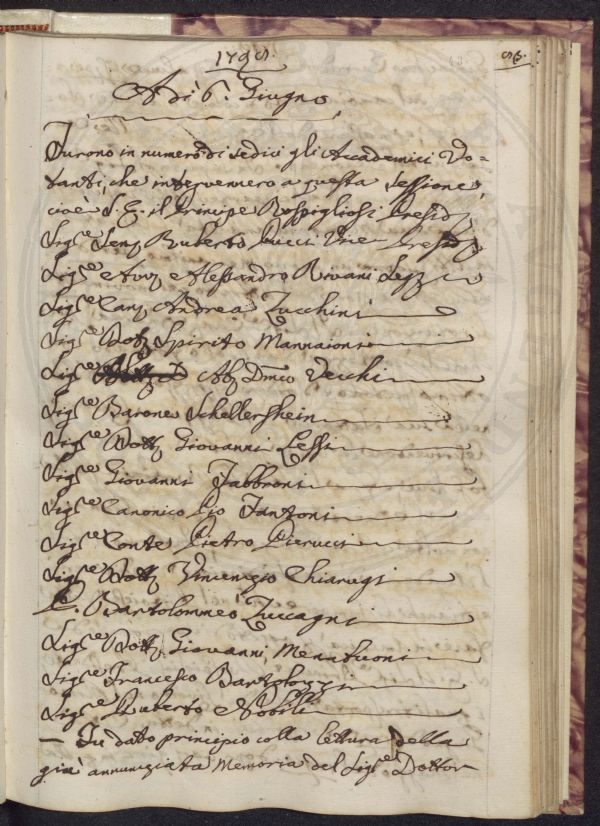 Adì 6. Giugno
Furono in numero di sedici gli Accademici Vo=
tanti, che intervennero a questa Sessione,
cioè S. E. il Principe Rospigliosi Presid.
Sig.e Sen. Ruberto Pucci Vice-Presid.
Sig.e Avv. Alessandro Rivani
Sig.e Can. Andrea Zucchini
Sig.e Dott. Spirito Mannaioni
Sig.e Ab. Dmco Vecchi
Sig.e Barone Schellershein
Sig.e Dott. Giovanni Lessi
Sig.e Giovanni Fabbroni
Sig.e Canonico Pio Fantoni
Sig.e Conte Pietro Pierucci
Sig.e Dott. Vincenzio Chiarugi
Bartolommeo Zuccagni
Sig.e Dott. Giovanni Menabuoni
Sig.e Francesco Bartolozzi
Sig.e Ruberto Nobili
— Fu dato principio colla lettura della
già annunziata Memoria del Sig.e Dottor